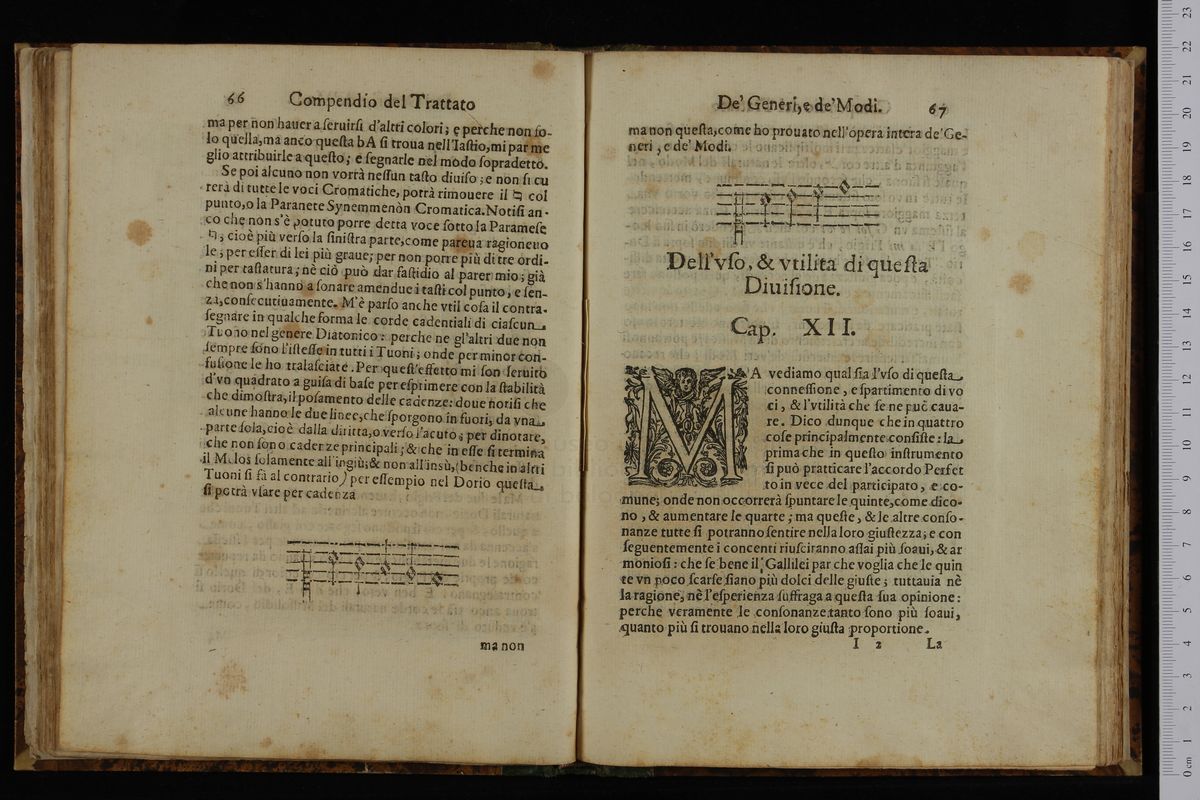 66 Compendio del Trattato
ma per non hauer a ſeruirſi d'altri colori; e perche non ſo-
lo quella, ma anco queſta bA ſi troua nell'Iaſtio, mi par me
glio attribuirle a queſto; e ſegnarle nel modo ſopradetto.
Se poi alcuno non vorrà neſſun taſto diuiſo; e non ſi cu
rerà di tutte le voci Cromatiche, potrà rimouere il ♮ col
punto, o la Paranete Synemmenòn Cromatica. Notiſi an-
co che non s'è potuto porre detta voce ſotto la Parameſe
♮, cioè più verſo la ſiniſtra parte, come pareua ragioneuo
le; per eſſer di lei più graue; per non porre più di tre ordi-
ni per taſtatura; nè ciò può dar faſtidio al parer mio; già
che non s'hanno a ſonare amendue i taſti col punto, e ſen-
za, conſecutiuamente. M'è parſo anche vtil coſa il contra-
ſegnare in qualche forma le corde cadentiali di ciaſcun
Tuono nel genere Diatonico: perche ne gl'altri due non
ſempre ſono l'iſteſſe in tutti i Tuoni; onde per minor con-
fuſione le ho tralaſciate. Per queſt'effetto mi ſon ſeruito
d'vn quadrato a guiſa di baſe per eſprimere con la ſtabilità
che dimoſtra, il poſamento delle cadenze: doue notiſi che
alcune hanno le due linee, che ſporgono in fuori, da vna
parte ſola, cioè dalla diritta, o verſo l'acuto; per dinotare,
che non ſono cadenze principali; & che in eſſe ſi termina
il Melos ſolamente all'ingiù; & non all'insù, (benche in altri
Tuoni ſi fà al contrario) per eſſempio nel Dorio queſta
ſi potrà vſare per cadenza
ma non
De' Generi, e de' Modi. 67
ma non queſta, come ho prouato nell'opera intera de' Ge-
neri, e de' Modi.
Dell'vſo, & vtilita di queſta
Diuiſione.
Cap. XII.
MA vediamo qual ſia l'vſo di queſta
conneſſione, e ſpartimento di vo
ci, & l'vtilità che ſe ne può caua-
re. Dico dunque che in quattro
coſe principalmente conſiſte: la
prima che in queſto inſtrumento
ſi può pratticare l'accordo Perfet
to in vece del participato, e co-
mune; onde non occorrerà ſpuntare le quinte, come dico-
no, & aumentare le quarte; ma queſte, & le altre conſo-
nanze tutte ſi potranno ſentire nella loro giuſtezza; e con
ſeguentemente i concenti riuſciranno aſſai più ſoaui, & ar
monioſi: che ſe bene il Gallilei par che voglia che le quin
te vn poco ſcarſe ſiano più dolci delle giuſte; tuttauia nè
la ragione, nè l'eſperienza ſuffraga a queſta ſua opinione:
perche veramente le conſonanze tanto ſono più ſoaui,
quanto più ſi trouano nella loro giuſta proportione.
I 2 La
0 cm 1 2 3 4 5 6 7 8 9 10 11 12 13 14 15 16 17 18 19 20 21 22 23